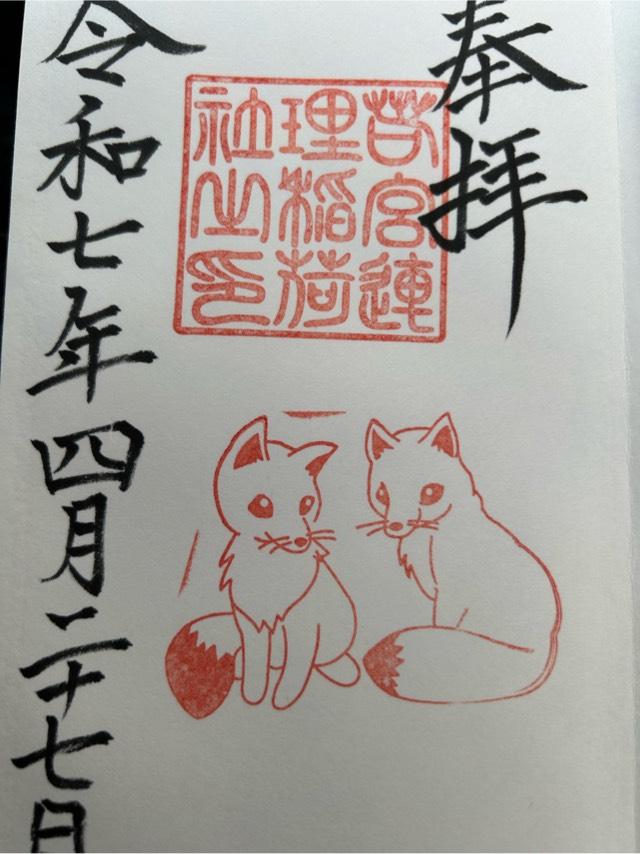 奉拝
若宮連
理稲荷
社之印
令和七年四月二十七日